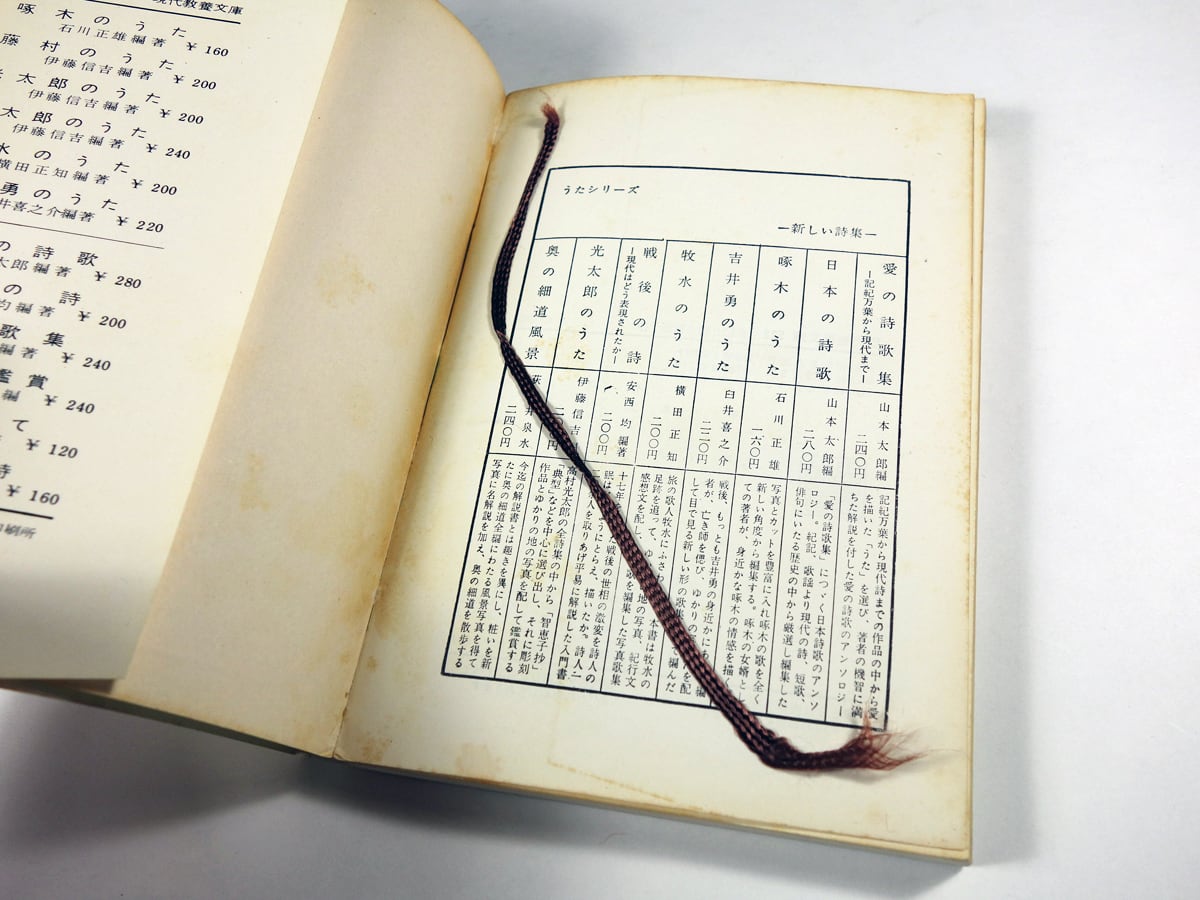 現代教養文庫
啄木のうた
石川正雄編著 ¥160
藤村のうた
伊藤信吉編著 ¥200
太郎のうた
伊藤信吉編著 ¥200
太郎のうた
伊藤信吉編著 ¥240
水のうた
横田正知編著 ¥200
勇のうた
井喜之介編著 ¥220
の詩歌
太郎編著 ¥280
の詩
均編著 ¥200
歌集
編著 ¥240
鑑賞
編 ¥240
て
¥120
詩
¥160
印刷所
うたシリーズ
―新しい詩集―
愛の詩歌集
―記紀万葉から現代まで―
山本太郎編
二四〇円
記紀万葉から現代詩までの作品の中から愛
を描いた「うた」を選び、著者の機智に満
ちた解説を付した愛の詩歌のアンソロジー
日本の詩歌
山本太郎編
二八〇円
「愛の詩歌集」につづく日本詩歌のアンソ
ロジー。紀記、歌謡より現代の詩、短歌、
俳句にいたる歴史の中から厳選し編集した
啄木のうた
石川正雄
一六〇円
写真とカットを豊富に入れ啄木の歌を全く
新しい角度から編集する。啄木の女婿とし
ての著者が、身近かな啄木の情感を描
吉井勇のうた
臼井喜之介
二二〇円
戦後、もっとも吉井勇の身近かにあ
者が、亡き師を偲び、ゆかりの を配
して目で見る新しい形の歌集 編んだ
牧水のうた
横田正知
二〇〇円
旅の歌人牧水にふさわ 本書は牧水の
足跡を追って、ゆ 地の写真、紀行文
感想文を配し 歌を編集した写真歌集
戦後の詩
―現代はどう表現されたか―
安西均編著
二〇〇円
十七年 戦後の世相の激変を詩人の
眼は ようにとらえ、描いたか。詩人二
人を取りあげ平易に解説した入門書
光太郎のうた
伊藤信吉
二〇〇円
高村光太郎の全詩集の中から「智恵子抄」
「典型」などを中心に選び出し、それに彫刻
作品とゆかりの地の写真を配して鑑賞する
奥の細道風景
荻井泉水
二四〇円
今迄の解説書とは趣きを異にし、粧いを新
たに奥の細道全編にわたる風景写真を得て
写真に名解説を加え、奥の細道を散歩する